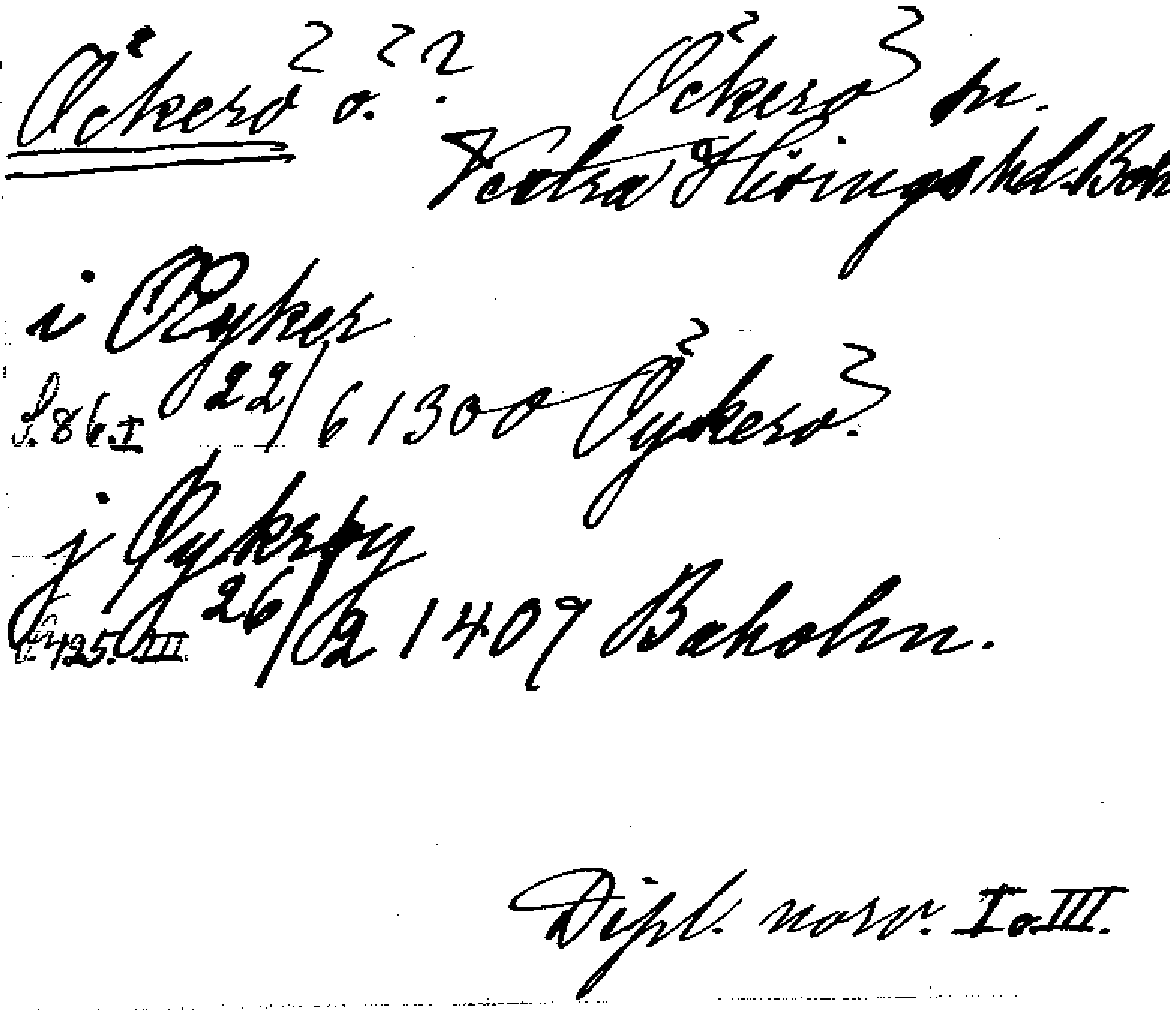 Öckerö ö.? Öckerö sn.
Vestra Hisings hd. Boh
i Øyker
S. 86. I 22/6 1300 Öykerö.
j Øykrøy
S. 425. III 26/2 1409 Baholm.
Dipl. norv. I o. III.